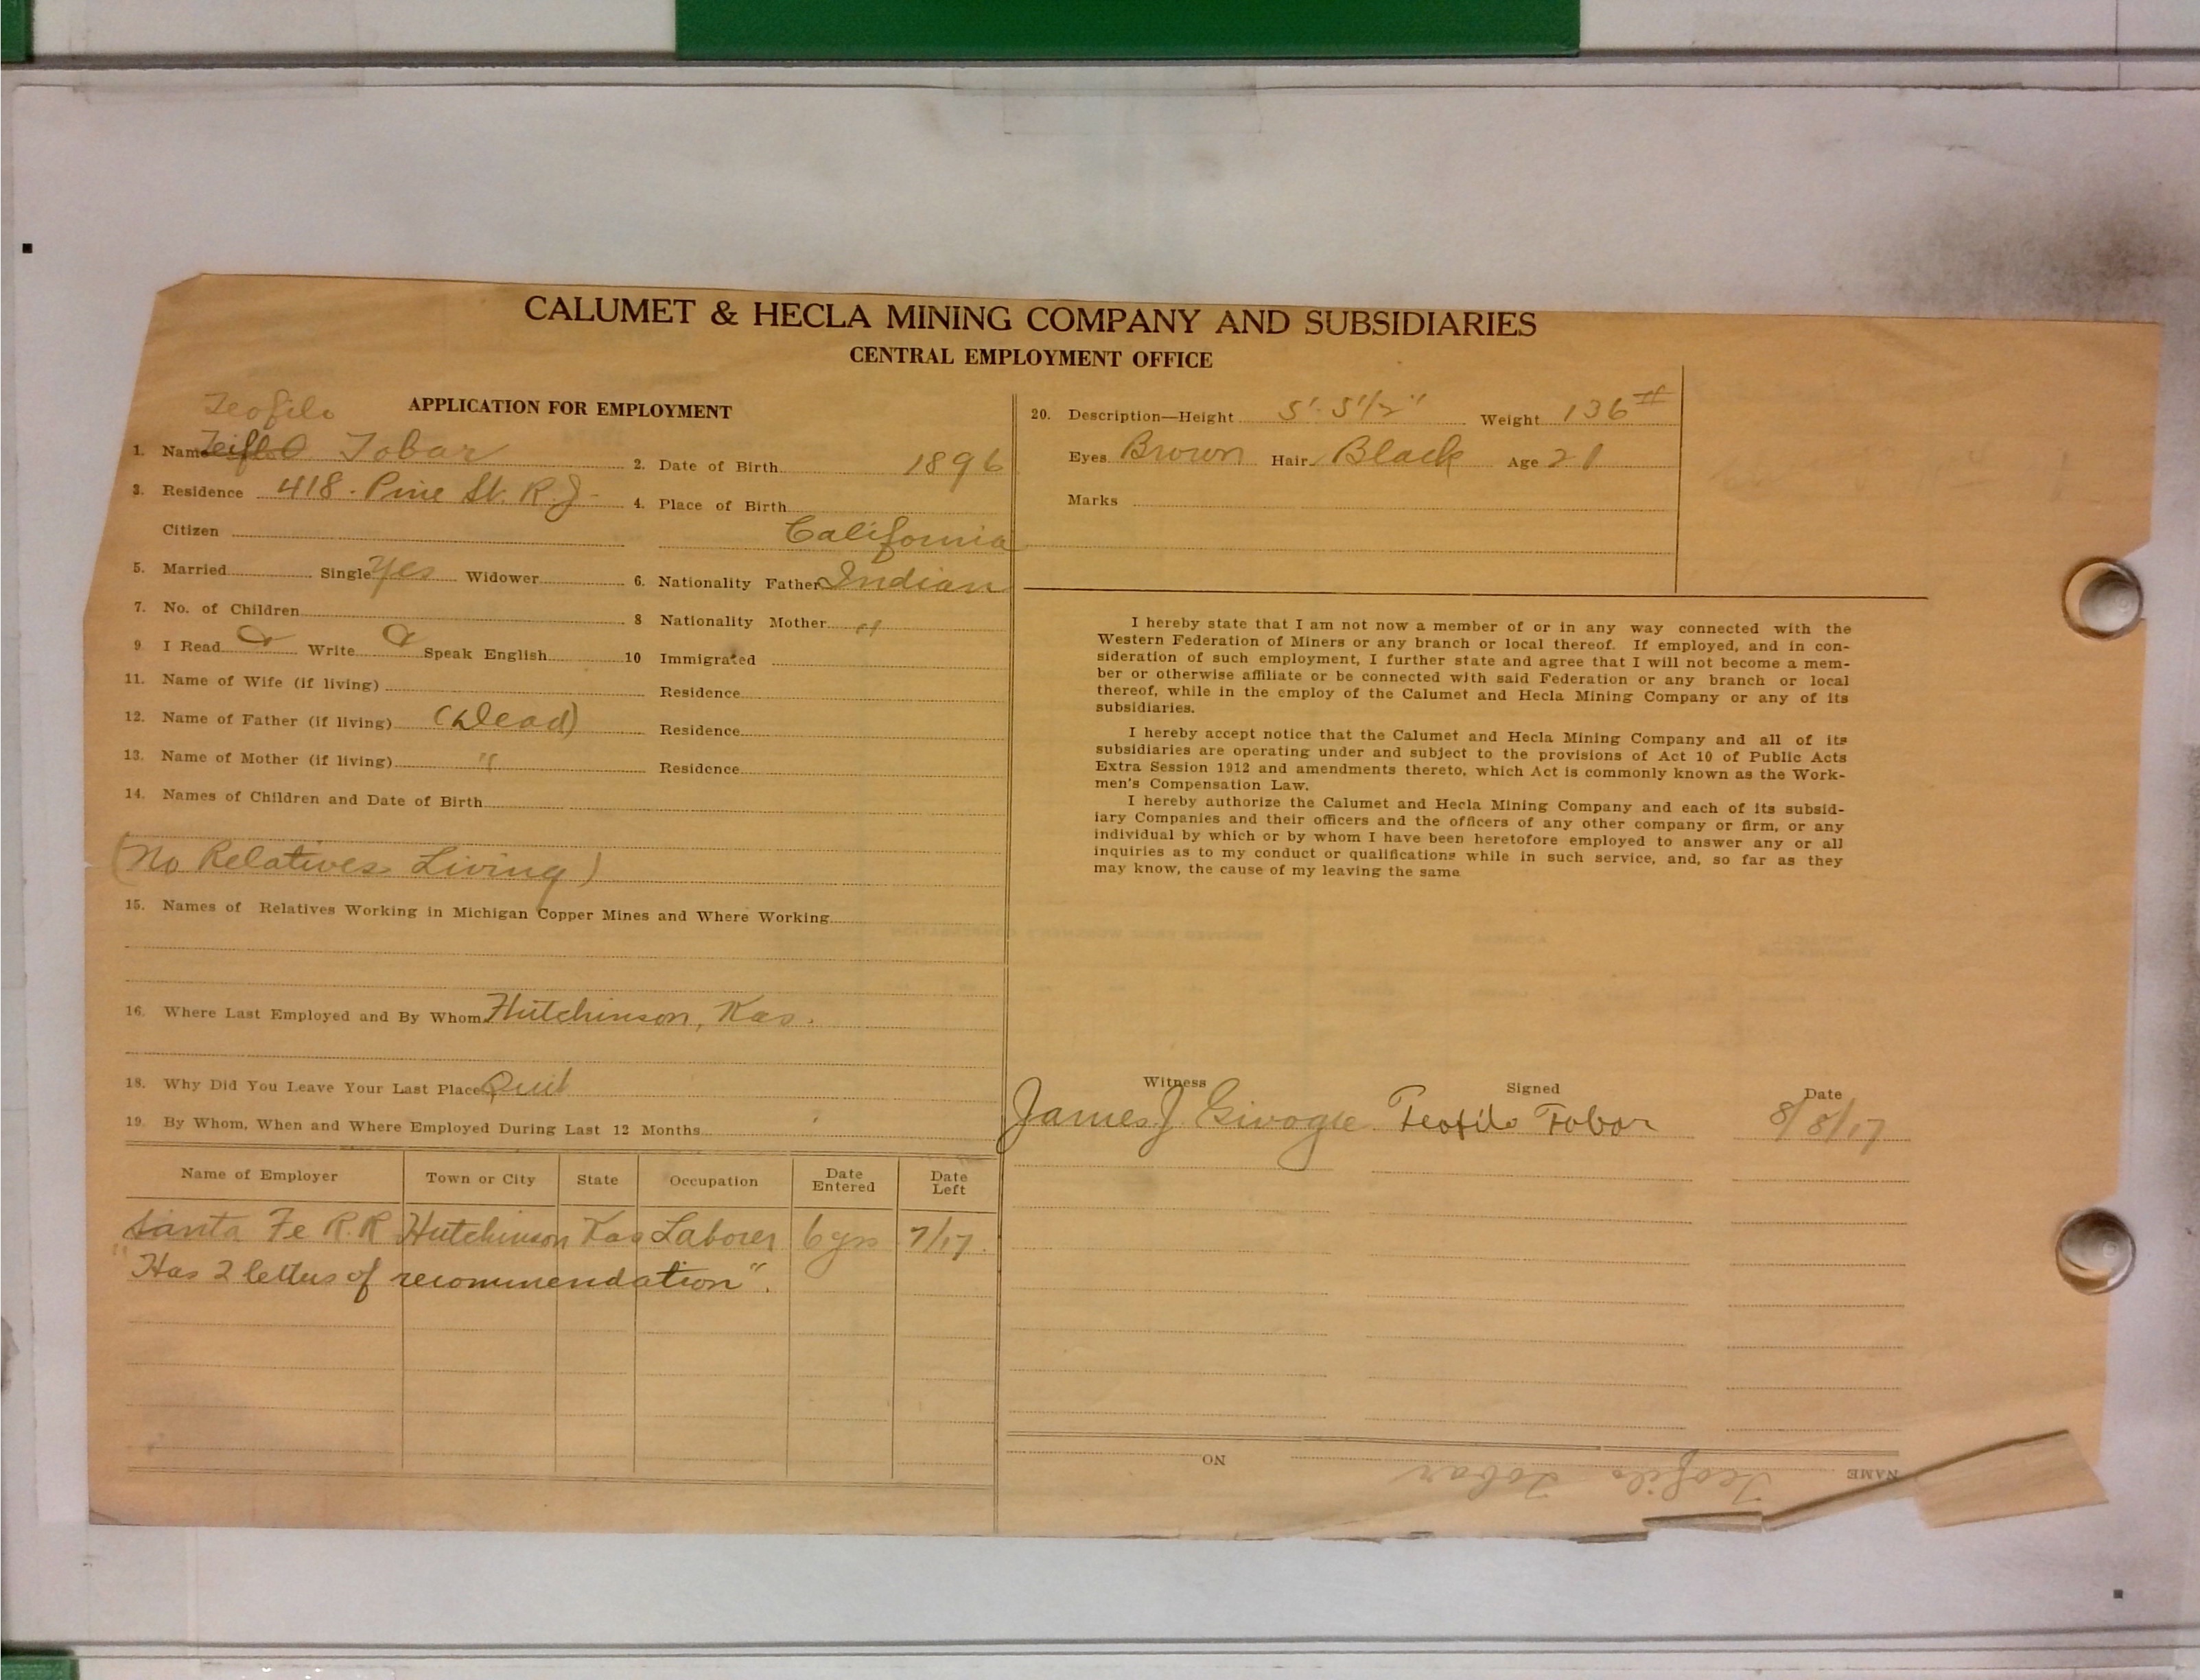 CALUMET & HECLA MINING COMPANY AND SUBSIDIARIES
CENTRAL EMPLOYMENT OFFICE
APPLICATION FOR EMPLOYMENT
Teofilo
1. Name Tobar
2. Date of Birth 1896
3. Residence 418 - Pine St. R. J -
4. Place of Birth
Citizen
California
5. Married Single Yes Widower
6. Nationality Father Indian
7. No. of Children
8 Nationality Mother "
9. I Read Write Speak English
10 Immigrated
11. Name of Wife (if living) Residence
12. Name of Father (if living) (Dead) Residence
13. Name of Mother (if living) " Residence
14. Names of Children and Date of Birth
(No Relatives Living)
15. Names of Relatives Working in Michigan Copper Mines and Where Working
16. Where Last Employed and By Whom Hutchinson, Kas.
18. Why Did You Leave Your Last Place Quit
19. By Whom, When and Where Employed During Last 12 Months
Name of Employer Town or City State Occupation Date Entered Date Left
Santa Fe R.R Hutchinson Kas Laborer 6 yrs 7/17.
"Has 2 letters of recommendation".
20. Description—Height 5'- 5 1/2" Weight 136 #
Eyes Brown Hair Black Age 21
Marks
I hereby state that I am not now a member of or in any way connected with the
Western Federation of Miners or any branch or local thereof. If employed, and in con-
sideration of such employment, I further state and agree that I will not become a mem-
ber or otherwise affiliate or be connected with said Federation or any branch or local
thereof, while in the employ of the Calumet and Hecla Mining Company or any of its
subsidiaries.
I hereby accept notice that the Calumet and Hecla Mining Company and all of its
subsidiaries are operating under and subject to the provisions of Act 10 of Public Acts
Extra Session 1912 and amendments thereto, which Act is commonly known as the Work-
men's Compensation Law.
I hereby authorize the Calumet and Hecla Mining Company and each of its subsid-
iary Companies and their officers and the officers of any other company or firm, or any
individual by which or by whom I have been heretofore employed to answer any or all
inquiries as to my conduct or qualifications while in such service, and, so far as they
may know, the cause of my leaving the same
Witness Signed Date
James J. Teofilo Tobar 8/8/17
NAME Teofilo Tobar NO